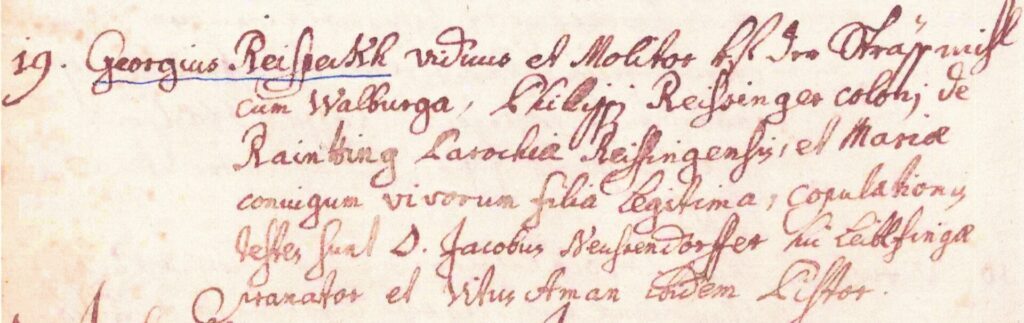 19. Georgius Reispeckh viduus et Molitor bӱ der Sträsmihl
cum Walburga, Philippi Reissinger colonj de
Rainting Parochiæ Reissingensis, et Mariæ
coniugum vivorum filia legitima, copulationis
testes sunt D. Jacobus hic Leiblfingæ
et Vitus Aman ibidem Pistor.